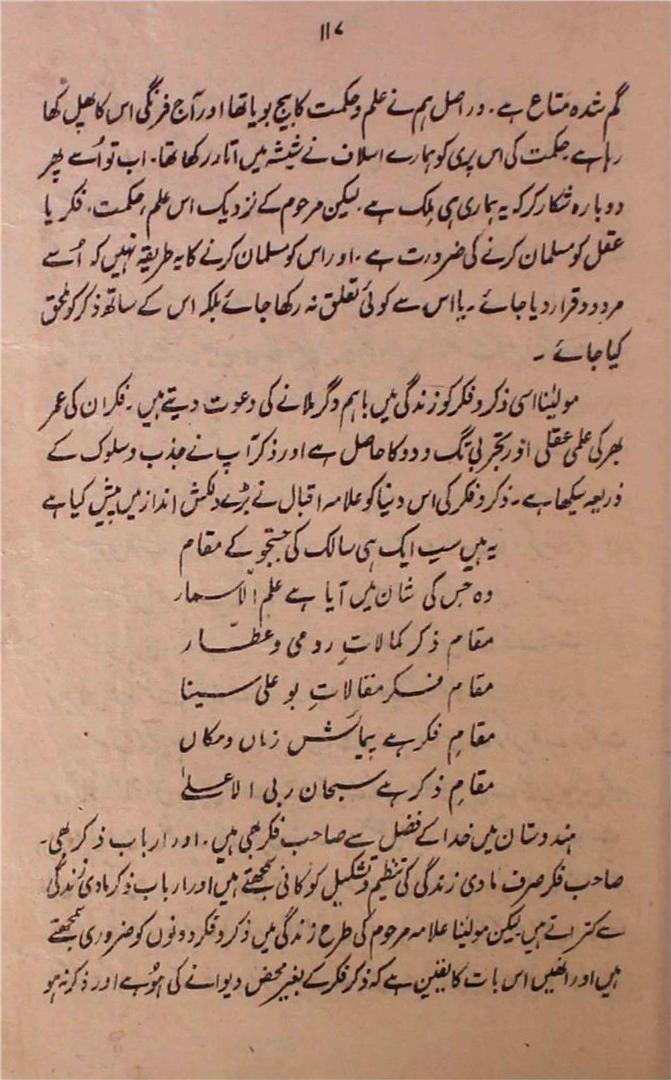 ۱۱۷
گم شدہ متاع ہے۔ دراصل ہم نے علم و حکمت کا بیج بویا تھا اور آج فرنگی اس کا پھل کھا
رہا ہے حکمت کی اس پری کو ہمارے اسلاف نے شیشہ میں اتار رکھا تھا۔ اب تو اُسے پھر
دوبارہ شکار کر کہ یہ ہماری ہی ملک ہے۔ لیکن مرحوم کے نزدیک اس علم، حکمت، فکر یا
عقل کو مسلمان کرنے کی ضرورت ہے۔ اور اس کو مسلمان کرنے کا یہ طریقہ نہیں کہ اُسے
مردود قرار دیا جائے۔ یا اس سے کوئی تعلق نہ رکھا جائے بلکہ اس کے ساتھ ذکر کو ملحق
کیا جائے۔
مولینا اسی ذکر و فکر کو زندگی میں باہم دگر ملانے کی دعوت دیتے ہیں۔ فکر ان کی عمر
بھر کی علمی عقلی اور تجربی تگ و دو کا حاصل ہے اور ذکر آپ نے جذب و سلوک کے
ذریعہ سیکھا ہے۔ ذکر و فکر کی اس دنیا کو علامہ اقبال نے بڑے دلکش انداز میں پیش کیا ہے
یہ ہیں سب ایک ہی سالک کی جستجو کے مقام
وہ جس کی شان میں آیا ہے علم الاسمار
مقام ذکر کمالاتِ رومی و عطّار
مقام فکر مقالاتِ بو علی سینا
مقامِ فکر ہے پیمائش زماں و مکاں
مقامِ ذکر ہے سبحان ربی الاعلےٰ
ہندوستان میں خدا کے فضل سے صاحب فکر بھی ہیں۔ اور ارباب ذکر بھی۔
صاحب فکر صرف مادی زندگی کی تنظیم و تشکیل کو کافی سمجھتے ہیں اور ارباب ذکر مادی زندگی
سے کتراتے ہیں لیکن مولینا علامہ مرحوم کی طرح زندگی میں ذکر و فکر دونوں کو ضروری سمجھتے
ہیں اور انھیں اس بات کا یقین ہے کہ ذکر فکر کے بغیر محض دیوانے کی ہُو ہے اور ذکر نہ ہو